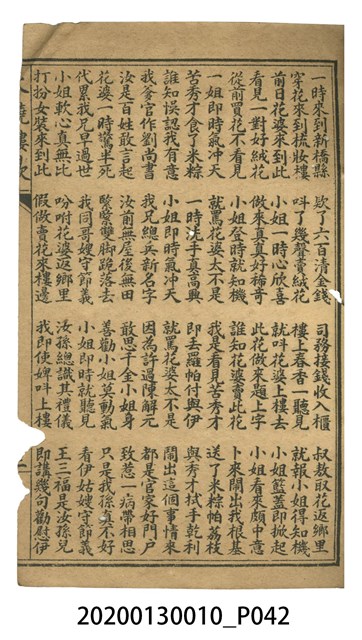 一時來到新橋縣 欽了六百清金錢 司務接錢收入櫃 叔教取花返鄉里
穿花來到梳妝樓 叫了幾聲賣絨花 樓上春香一聽見 就報小姐得知機
前日花婆來到此 小姐一時心欣喜 就叫花婆上樓去 小姐籃蓋即掀起
看見一對好絨花 做來真真好稀奇 此花做來題上字 小姐看來頗中意
從前買花不看見 小姐登時就知機 誰知花婆賣此花 卜來鬧出我根基
一姐即時氣冲天 就罵花婆太不是 我是看見苦秀才 送了米粽帕荔枝
苦秀才食了米粽 一時洗手真高興 即去羅帕付與伊 與秀才拭手乾利
誰知悞認我有意 小姐即時氣冲天 就罵花婆太不是 鬧出這個事情來
我爹官作劉尚書 我兄總兵新名字 因為許過陳解元 都是官家好門户
汝是百姓敢言起 汝前無屋後無田 敢思千金小姐身 致惹一病帶相思
花婆一時驚半死 緊緊雙脚跪落去 善勸小姐莫動氣 只是我孫真不好
代累我兄早過世 我同哥嫂守節義 小姐即時就聽見 看伊姑嫂守節義
小姐軟心真無比 吩咐花婆返鄉里 汝孫總識其禮儀 王三福是汝孫兒
打扮女裝來到此 假做賣花來樓邊 我即使婢叫上樓 即講幾句勸慰伊
20200130010_P042